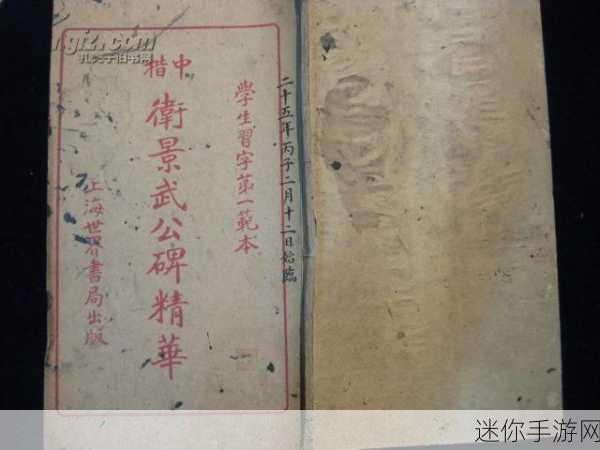 二十五年丙子二月十二日始臨
學生習字第一範本
中楷
衛景武公碑精華
上海世界書局出版
ngfz.com
孔夫子旧书网
迷你手游网